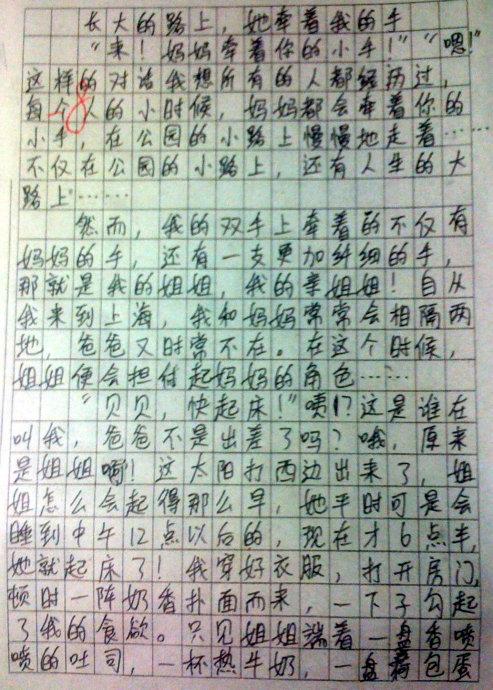 长大的路上，她牵着我的手
“来！妈妈牵着你的小手！”“嗯！”
这样的对话我想所有的人都经历过，
每个人的小时候，妈妈都会牵着你的
小手，在公园的小路上慢慢地走着……
不仅在公园的小路上，还有人生的大
路上……
然而，我的双手上牵着的不仅有
妈妈的手，还有一支更加纤细的手，
那就是我的姐姐，我的亲姐姐！自从
我来到上海，我和妈妈常常会相隔两
地，爸爸又时常不在。在这个时候，
姐姐便会担付起妈妈的角色……
“贝贝，快起床！”咦！？这是谁在
叫我，爸爸不是出差了吗？哦，原来
是姐姐啊！这太阳打西边出来了，姐
姐怎么会起得那么早，她平时可是会
睡到中午12点以后的，现在才6点半，
她就起床了！我穿好衣服，打开房门，
顿时一阵奶香扑面而来，一下子勾起
了我的食欲。只见姐姐端着一盘香喷
喷的吐司，一杯热牛奶，一盘荷包蛋